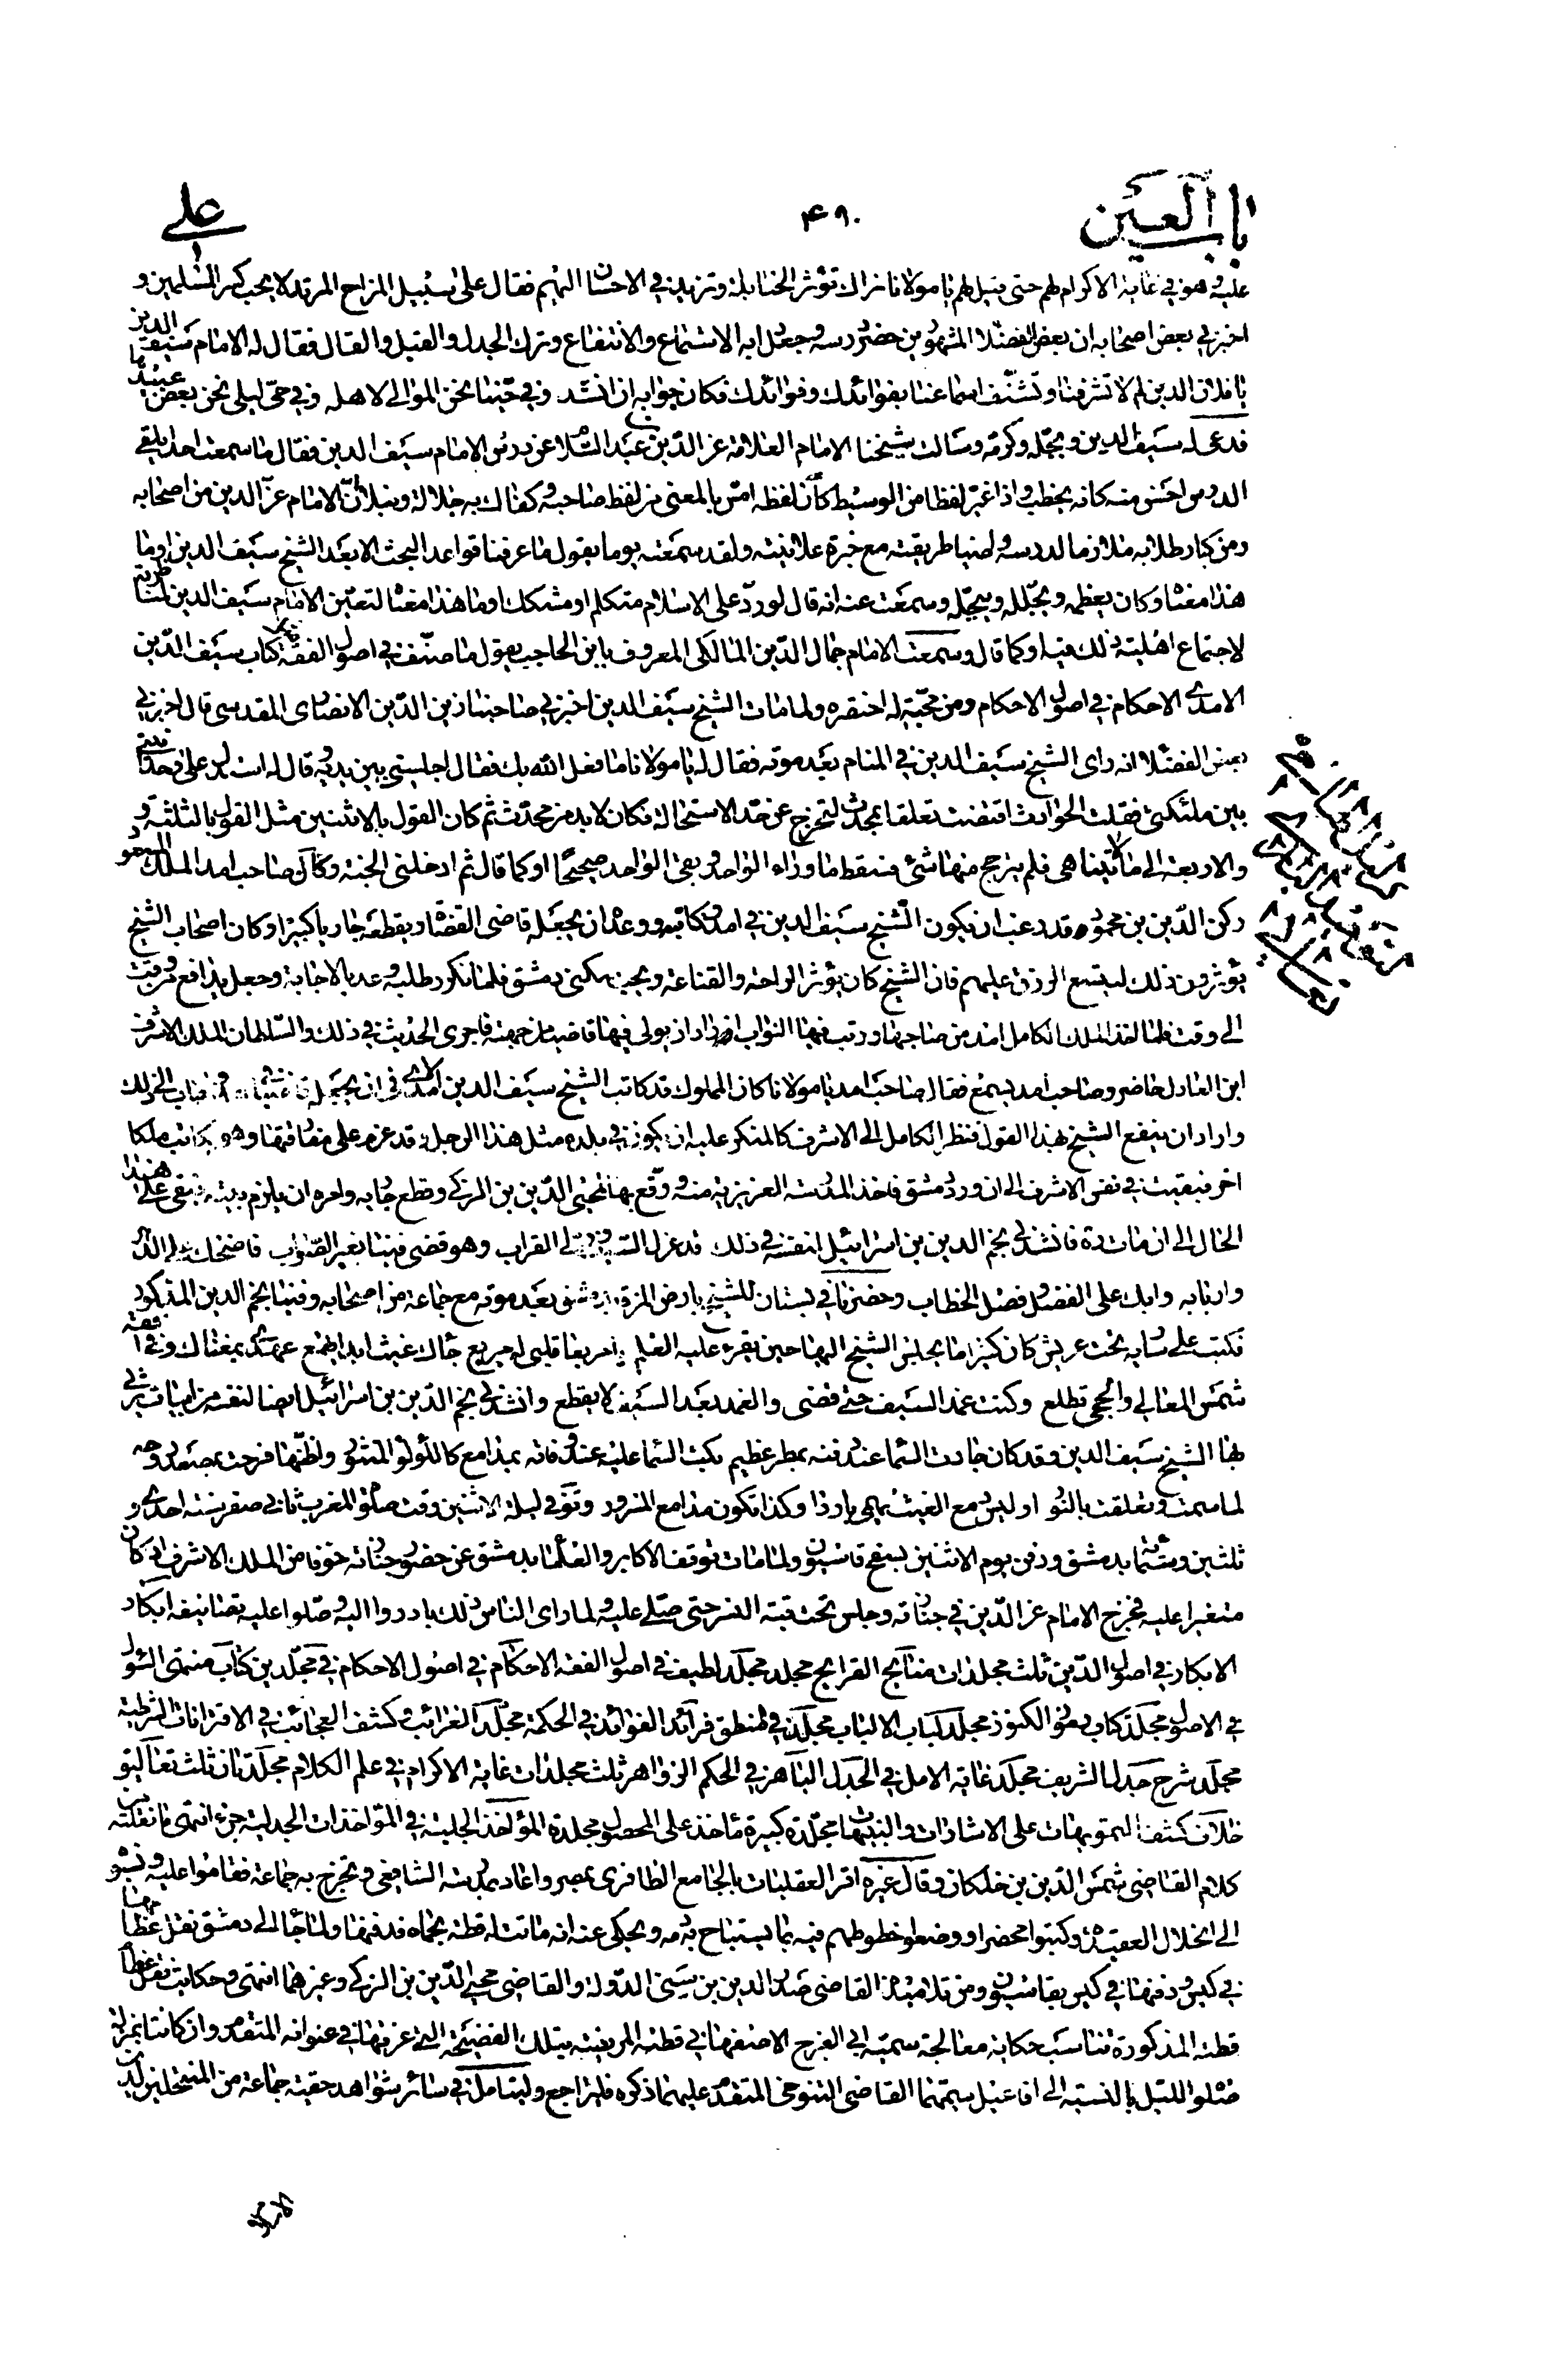 باب العين ۴۹۰ علي
عليه وهو في غاية الاكرام لهم حتى قيل لهم يا مولانا نراك تؤثر الحنابلة وتزيد في الاحسان اليهم فقال على سبيل المزاح المرتد لا يحب كسر المسلمين و
اخبرني بعض اصحابه ان بعض الفضلاء المشهورين حضر درسه وجعل دابه الاستماع والانتفاع وترك الجدل والقيل والقال فقال له الامام سيف الدين
يا فلان الدين لم لا تشرفنا وتشنف اسماعنا بفوائدك وفرائدك فكان جوابه ان انشد وفي حينا نحن الموالي لاهله وفي حي ليلى نحن بعض عبيدها
فدعى له سيف الدين وبجله وكرمه وسالت شيخنا الامام العلامة عز الدين بن عبد السلام عن درس الامام سيف الدين فقال ما سمعت احدا يلقي
الدروس احسن منه كانه يخطب واذا غير لفظا من الوسيط كان لفظه امس بالمعنى من لفظ صاحبه وكفاك به جلالة ونبلا ان الامام عز الدين من اصحابه
ومن كبار طلابه ملازما لدروسه راضيا طريقته مع خبرة علانيته ولقد سمعته يوما يقول ما عرفنا قواعد البحث الا بعد الشيخ سيف الدين او ما
هذا معناه وكان يعظمه ويجلله ويبجله وسمعت عنه انه قال لو ورد على الاسلام متكلم او مشكك او ما هذا معناه لتعين الامام سيف الدين لمناظرته
لاجتماع اهلية ذلك فيه او كما قال وسمعت الامام جمال الدين المالكي المعروف بابن الحاجب يقول ما صنف في اصول الفقه مثل كتاب سيف الدين
الامدي الاحكام في اصول الاحكام ومن محبته له اختصره ولما مات الشيخ سيف الدين اخبرني صاحبنا زين الدين الانصاري المقدسي قال اخبرني
بعض الفضلاء انه راى الشيخ سيف الدين في المنام بعد موته فقال له يا مولانا ما فعل الله بك فقال اجلسني بين يديه وقال له استدل على وحدانيتي
بين ملئكتي فقلت الحوادث اقتضت تعلقا بمحدث لتخرج عن حد الاستحالة فكان لا بد من محدث ثم كان القول بالاثنين مثل القول بالثلثة و
والاربعة الى ما لا يتناهى فلم يترجح منها شئ فسقط ما وراء الواحد وبقي الواحد صحيحا او كما قال ثم ادخلني الجنة وكان صاحب امد الملك المسعود
ركن الدين بن محمود قد رغب ان يكون الشيخ سيف الدين في امد وكاتبه ووعده ان يجعله قاضي القضاة ويقطعه جاريا كبيرا وكان اصحاب الشيخ
يؤثرون ذلك ليتسع الرزق عليهم فان الشيخ كان يؤثر الراحة والقناعة ويحب سكنى دمشق فلما تكرر طلبه وعده بالاجابة وجعل يدافع من وقت
الى وقت فلما اخذ الملك الكامل امد من صاحبها ورتب فيها النواب اراد ان يولي فيها قاضيا من جهته فاجرى الحديث في ذلك والسلطان الملك الاشرف
ابن العادل حاضر وصاحب امد يسمع فقال صاحب امد يا مولانا كان المملوك قد كاتب الشيخ سيف الدين الامدي في ان يجعله قاضيا الى ذلك
واراد ان ينفع الشيخ بهذا القول فنظر الكامل الى الاشرف كالمنكر عليه ان يكون في بلده مثل هذا الرجل قد عزم على مفارقتها وهو يكاتب ملكا
اخر فبقيت في نفس الاشرف الى ان ورد دمشق فاخذ المدرسة العزيزية منه ووقع بها لمحيي الدين بن الزكي وقطع جاريه وامره ان يلزم بيته فبقي على هذا
الحال الى ان مات ره فانشدني نجم الدين بن اسرائيل لنفسه في ذلك قد عزل السيف ولي القراب وهو قضى فينا بغير الصواب فاضحك على الدهر
واربابه وابك على الفضل وفصل الخطاب وحضرنا في بستان للشيخ بارض المزة بدمشق بعد موته مع جماعة من اصحابه وفينا نجم الدين المذكور
فكتب على سارية تحت عريش كان كثيرا ما يجلس الشيخ اليها حين يقرء عليه العلم يا مربعا قلبي له مربع جادك غيث ابدا يهمع عهدي بمغناك وفي افقه
شمس المعالي والحجى تطلع وكنت غمد السيف حتى قضى والغمد بعد السيف لا يقطع وانشدني نجم الدين بن اسرائيل ايضا لنفسه من ابيات يرثي
بها الشيخ سيف الدين وقد كان جادت السماء عند دفنه بمطر عظيم بكت السماء عليه عند وفاته بمدامع كاللؤلؤ المنثور واظنها فرحت بمصعد روحه
لما سمت وتعلقت بالنور او ليس دمع الغيث يهمي باردا وكذا تكون مدامع المسرور وتوفي ليلة الاثنين وقت صلوة المغرب ثاني صفر سنة احدى و
ثلثين وستمائة بدمشق ودفن يوم الاثنين بسفح قاسيون ولما مات توقف الاكابر والعلماء بدمشق عن حضور جنازته خوفا من الملك الاشرف اذ كان
متغيرا عليه فخرج الامام عز الدين في جنازته وجلس تحت قبة النسر حتى صلى عليه ولما راى الناس ذلك بادروا اليه وصلوا عليه تصانيفه ابكار
الابكار في اصول الدين ثلث مجلدات منتايج القرايح مجلد مجلد لطيف في اصول الفقه الاحكام في اصول الاحكام في مجلدين كتاب منتهى السول
في الاصول مجلد كتاب رموز الكنوز مجلد لباب الالباب مجلد في المنطق فرائد الفوائد في الحكمة مجلد الغرائب وكشف العجائب في الاقترانات الشرطية
مجلد شرح جدل الشريف مجلد غاية الامل في الجدل الباهر في الحكم الزواهر ثلث مجلدات غاية الاكرام في علم الكلام مجلدتان ثلث تعاليق
خلاف كشف التمويهات على الاشارات والتنبيهات مجلدة كبيرة مآخذ على المحصول مجلدة المؤاخذ الجلية في المؤاخذات الجدلية جزء انتهى ما نقلته من
كلام القاضي شمس الدين بن خلكان وقال غيره اقرء العقليات بالجامع الظافري بمصر واعاد بمدرسة الشافعي وتخرج به جماعة فقاموا عليه ونسبوه
الى انحلال العقيدة وكتبوا محضرا ووضعوا خطوطهم فيه بما يستباح به دمه ويحكى عنه انه ماتت له قطة بحماه فدفنها ولما جاء الى دمشق نقل عظامها
في كيس ودفنها في كيس بقاسيون ومن تلاميذه القاضي صدر الدين بن سني الدولة والقاضي محيي الدين بن الزكي وغيرهما انتهى وحكاية نقل عظام
قطته المذكورة تناسب حكاية معالجة سميه ابي الفرج الاصفهاني قطته المريضة بتلك الفضيحة التي عرفتها في عنوانه المتقدم وان كانتا بمنزلة
ضئلو الليل بالنسبة الى افاعيل سميهما القاضي التنوخي المتقدم عليهما ذكره فليراجع وليتامل في سائر شواهد حقية جماعة من المنتحلين لدين